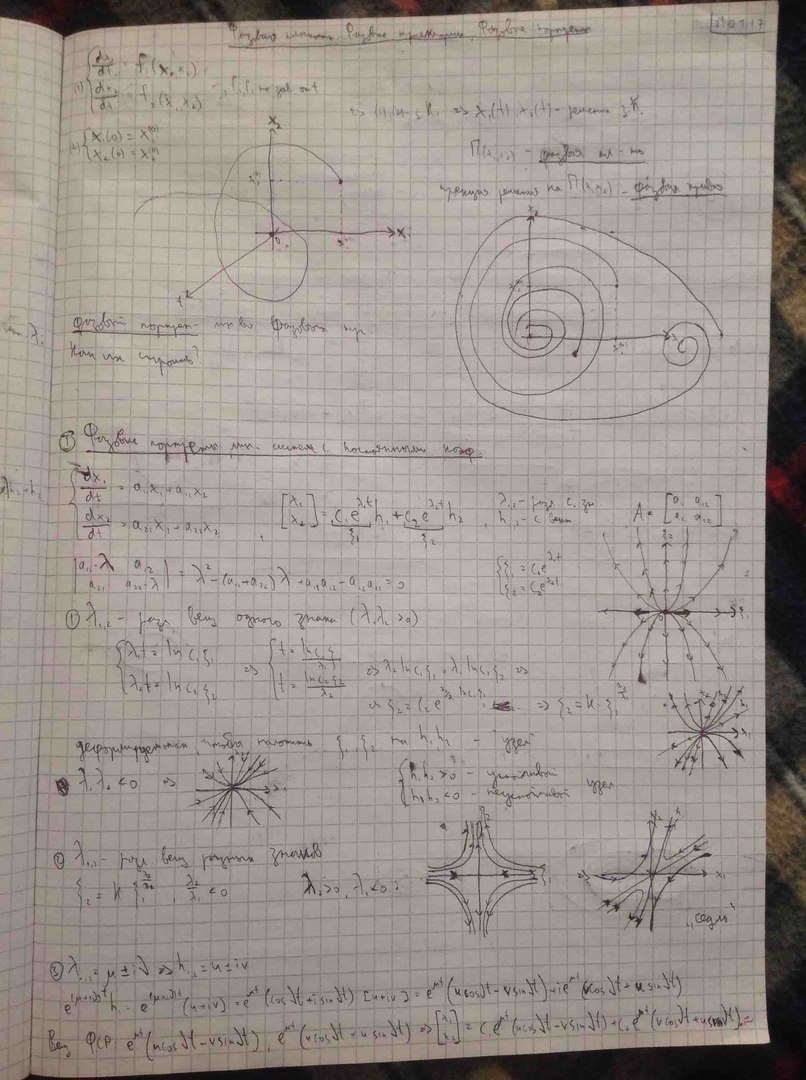 Фазовая плоскость. Фазовые траектории. Фазовые портреты
(1) { dx₁/dt = f₁(x₁, x₂)
dx₂/dt = f₂(x₁, x₂) , f₁, f₂ не зав. от t
(2) { x₁(0) = x₁⁽⁰⁾
x₂(0) = x₂⁽⁰⁾
⇒ (1), (2) - з. К. ⇒ x₁(t), x₂(t) - решение з. К.
П(x₁, x₂) - фазовая пл-ть
проекция решения на П(x₁x₂) - фазовая кривая
Фазовый портрет - мн-во фазовых кр.
Как их строить?
I Фазовые портреты лин. систем с постоянными коэф.
{ dx₁/dt = a₁₁x₁ + a₁₂x₂
dx₂/dt = a₂₁x₁ + a₂₂x₂ ,
[x₁ x₂] = c₁e^{λ₁t} h₁ + c₂e^{λ₂t} h₂ ,
ξ₁ ξ₂
λ₁,₂ - разл с. зн
h₁,₂ - с. век
A = [a₁₁ a₁₂ a₂₁ a₂₂]
|a₁₁-λ a₁₂ a₂₁ a₂₂-λ| = λ² - (a₁₁+a₂₂)λ + a₁₁a₂₂ - a₁₂a₂₁ = 0
{ ξ₁ = c₁e^{λ₁t}
ξ₂ = c₂e^{λ₂t}
① λ₁,₂ - разл вещ одного знака (λ₁λ₂ > 0)
{ λ₁t = ln c₁ξ₁
λ₂t = ln c₂ξ₂
⇒ { t = ln c₁ξ₁/λ₁
t = ln c₂ξ₂/λ₂
⇒ λ₂ ln c₁ξ₁ = λ₁ ln c₂ξ₂ ⇒
⇒ ξ₂ = c₂ e^{λ₂/λ₁ ln c₁ξ₁} ⇒ ξ₂ = K·ξ₁^{λ₂/λ₁}
деформируем так, чтобы наложить ξ₁, ξ₂ на h₁, h₂ - "узел"
λ₁, λ₂ < 0 ⇒
{ h₁, h₂ > 0 - устойчивый
h₁, h₂ < 0 - неустойчивый узел
② λ₁,₂ - разл вещ разных знаков
ξ₂ = K ξ₁^{λ₂/λ₁} , λ₂/λ₁ < 0 λ₂ > 0, λ₁ < 0 :
"седло"
③ λ₁,₂ = μ ± iν ⇒ h₁,₂ = u ± iv
e^{(μ+iν)t} h₁ = e^{(μ+iν)t} (u+iv) = e^{μt} (cos νt + i sin νt) [u+iv] = e^{μt} (u cos νt - v sin νt) + i e^{μt} (v cos νt + u sin νt)
Вещ ФСР: e^{μt} (u cos νt - v sin νt), e^{μt} (v cos νt + u sin νt) ⇒ [x₁ x₂] = c₁e^{μt} (u cos νt - v sin νt) + c₂e^{μt} (v cos νt + u sin νt) =